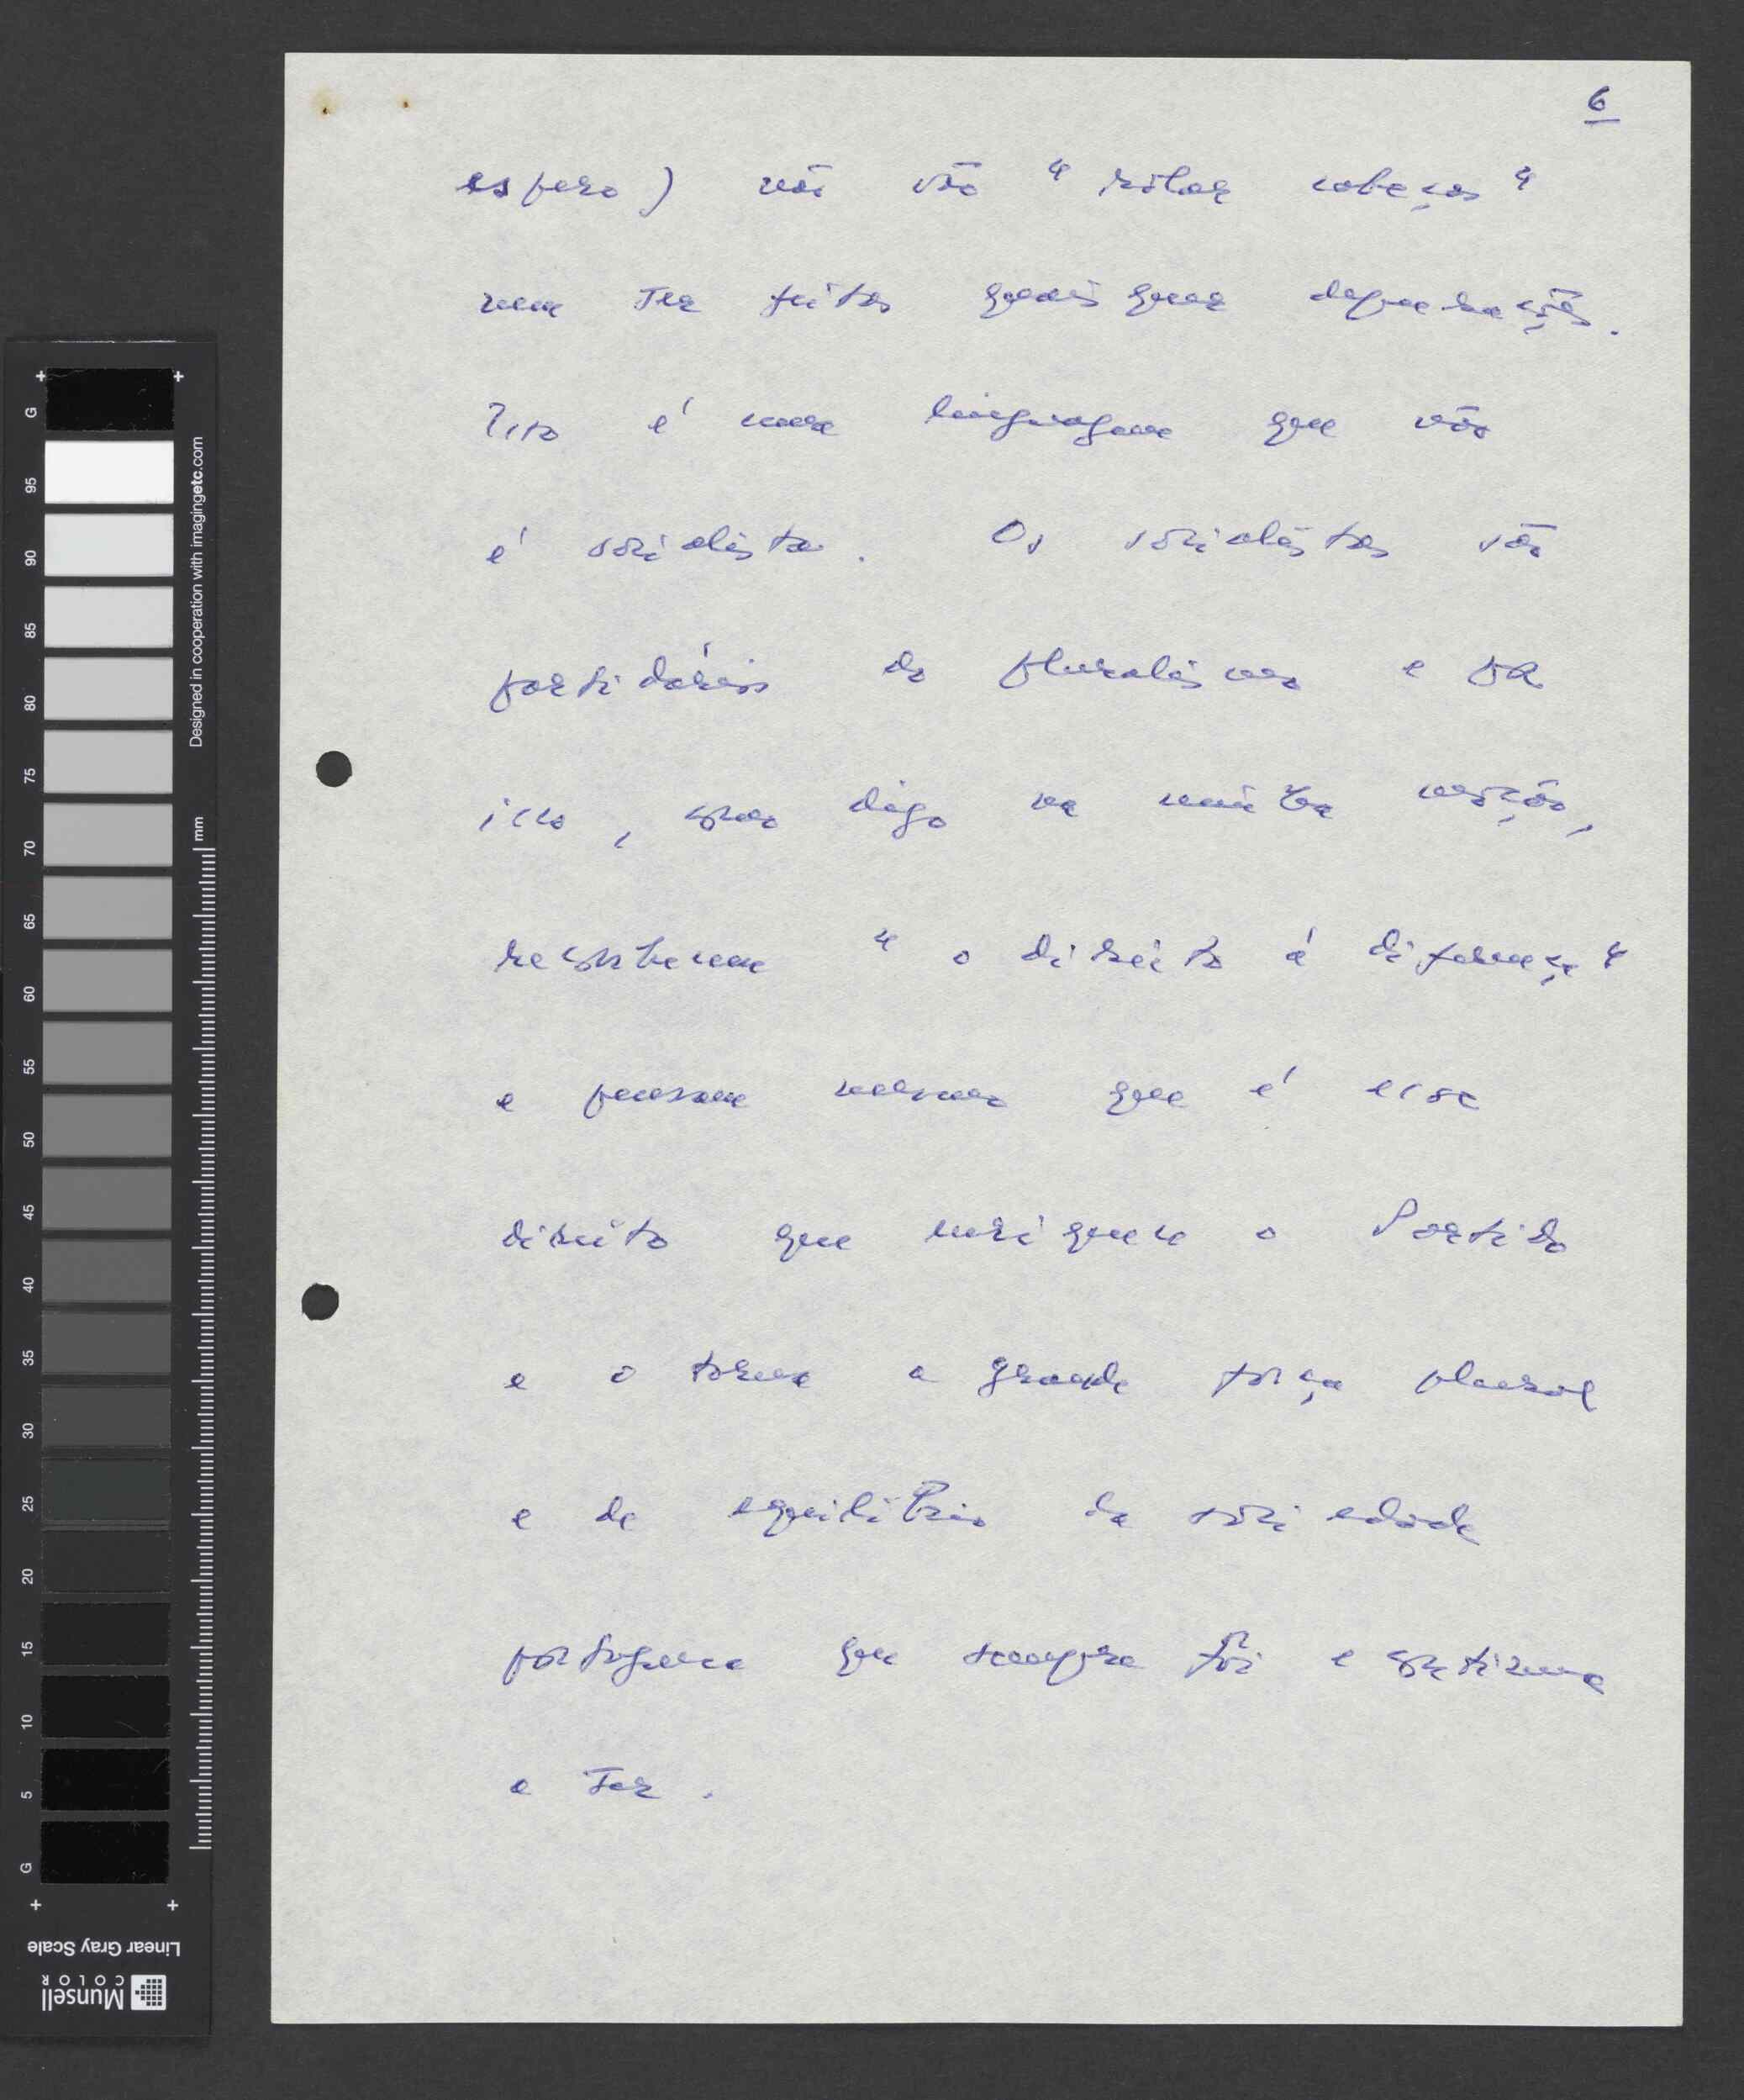 6
espero) não vão "rolar cabeças"
nem ser feitas quaisquer depurações.
Isso é uma linguagem que não
é socialista. Os socialistas são
partidários do pluralismo e por
isso, como digo na minha moção,
reconhecem "o direito à diferença"
e pensam mesmo que é esse
direito que enriquece o Partido
e o torna a grande força plural
e de equilíbrio da sociedade
portuguesa que sempre foi e continua
a ser.
G
95
90
85
80
75
70
65
60
55
50
45
40
35
30
25
20
15
10
5
G
mm
Designed in cooperation with imagingetc.com
Linear Gray Scale
Munsell
COLOR